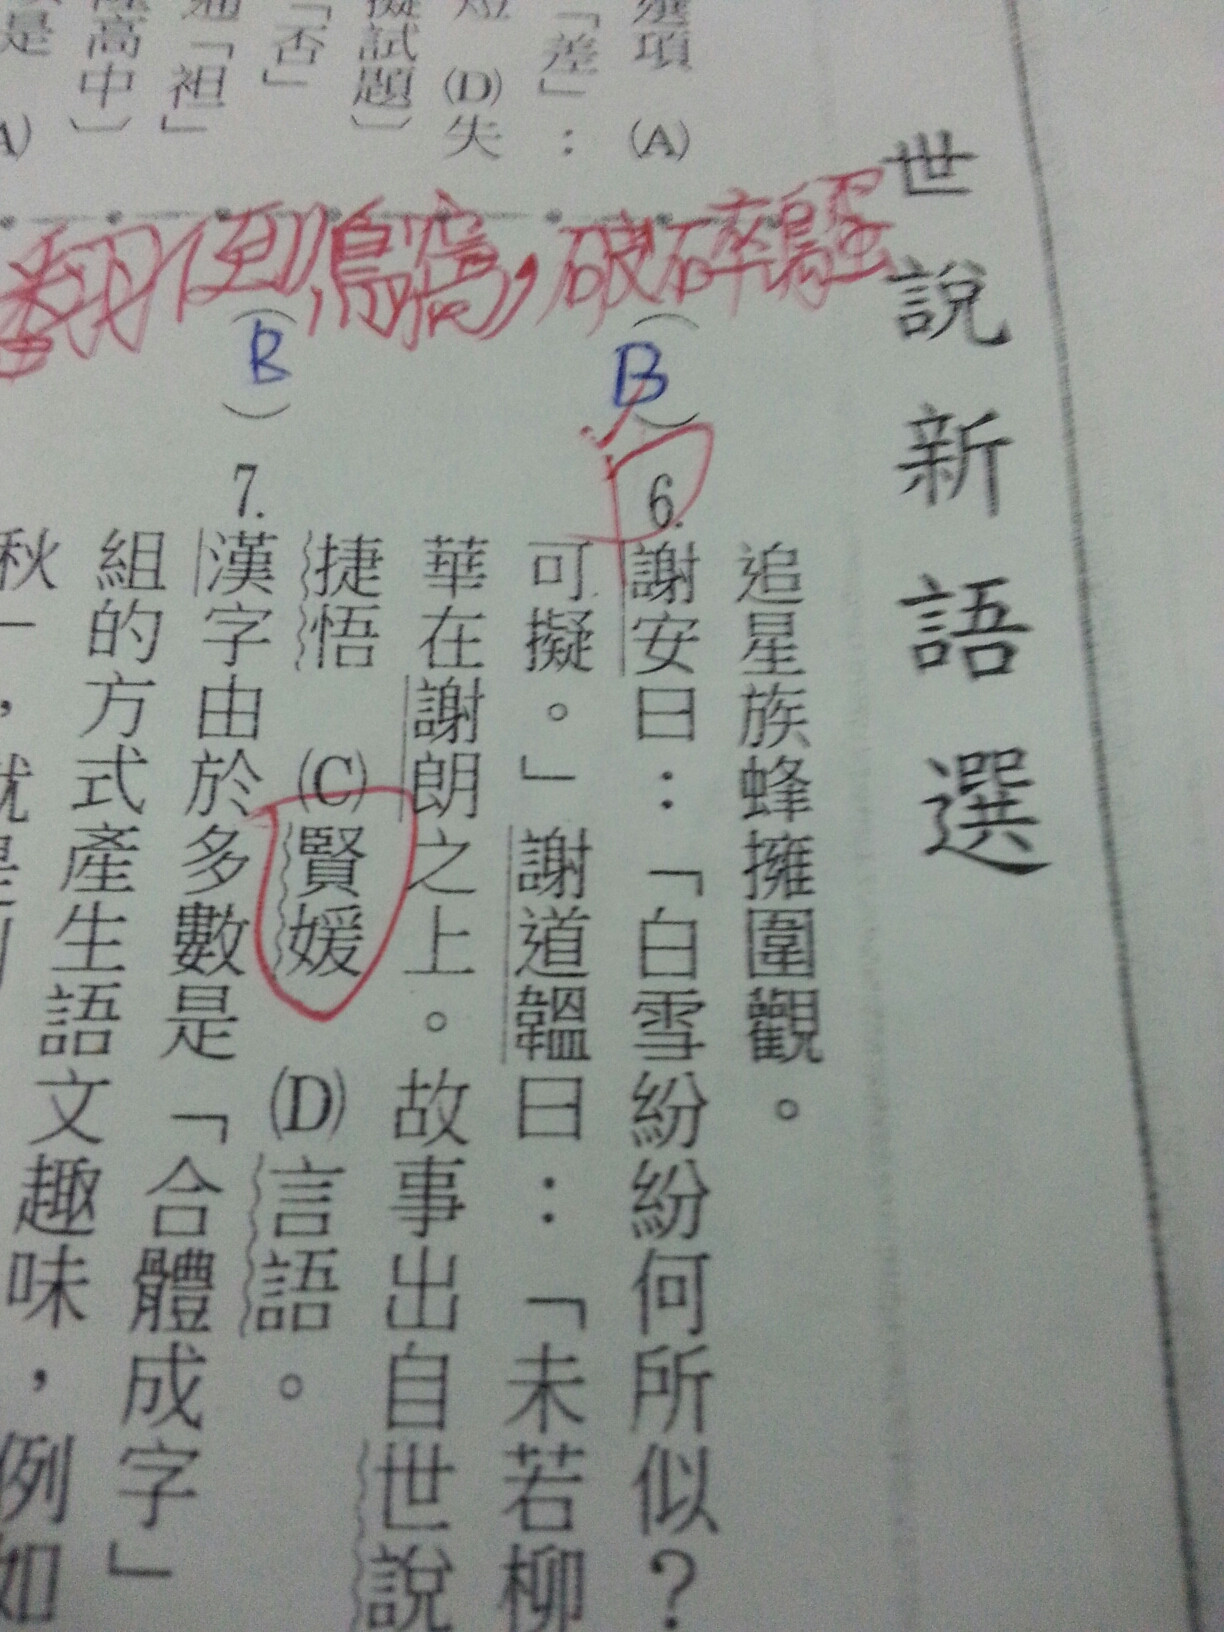 世說新語選
追星族蜂擁圍觀。
6.謝安曰：「白雪紛紛何所似？
可擬。」謝道韞曰：「未若柳
華在謝朗之上。故事出自世說
捷悟 (C)賢媛 (D)言語。
7.漢字由於多數是「合體成字」
組的方式產生語文趣味，例如
秋一，就是
(B)
(B)
選項 (A)
「差」：
(D)失
擬試題〕
「否」
通「袒」
高中〕
是 (A)
翻便鳥窩，破碎